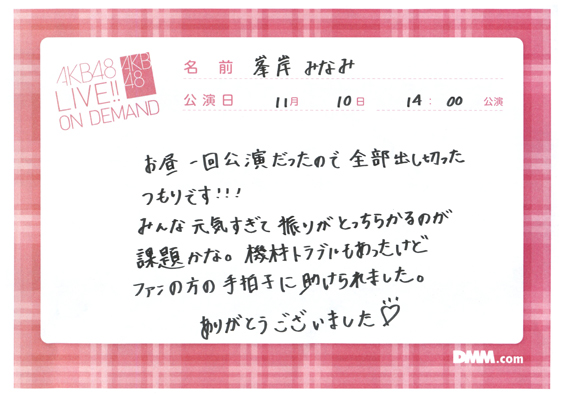 AKB48
LIVE!!
ON DEMAND
AKB
48
名前 峯岸 みなみ
公演日 11月 10日 14:00 公演
お昼 一回公演だったので 全部出し切った
つもりです!!!
みんな 元気すぎて 振りがとっちらかるのが
課題かな。機材トラブルもあったけど
ファンの方の 手拍子に 助けられました。
ありがとうございました♡
DMM.com